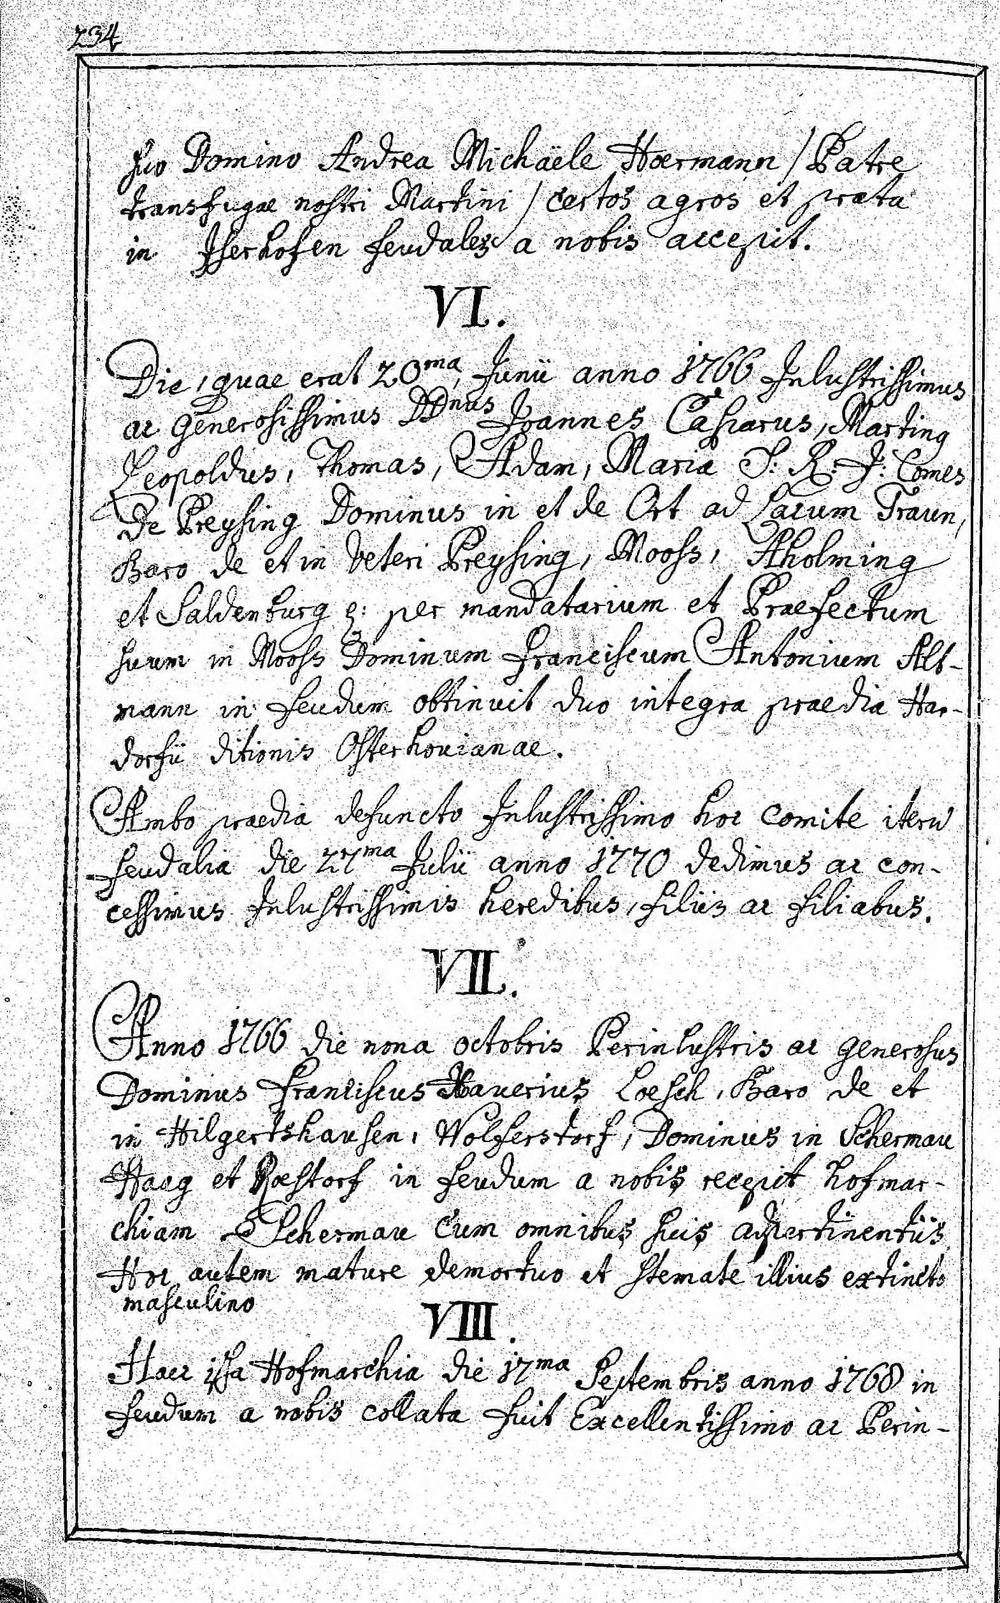 234
suo Domino Andrea Michäele Hoermann / Patre
transfugae nostri Martini / certos agros et prata
in Iserhofen feudales a nobis accepit.
VI.
Die, quae erat 20ma, Junii anno 1766 Inlustrissimus
ac Generosissimus DDnus Joannes Casparus, Marting
Leopoldus, Thomas, Adam, Maria S: R: I: Comes
De Preysing Dominus in et de Ort ad Lacum Traun,
Baro de et in Veteri Preysing, Mooss, Aholming
et Saldenburg per mandatarium et Praefectum
suum in Mooss Dominum Franciscum Antonium Alt-
mann in feudum obtinuit duo integra praedia Har-
dorfii ditionis Osterhovianae.
Ambo praedia defuncto Inlustrissimo hoc comite iteru
feudalia die 27ma Julii anno 1770 dedimus ac con-
cessimus Inlustrissimis heredibus, filiis ac filiabus.
VII.
Anno 1766 die nona octobris Perinlustris ac generosus
Dominus Franciscus Xaverius Loesch, Baro de et
in Hilgertshausen, Wolferstorf, Dominus in Schermau
Haag et Roestorf in feudum a nobis recepit hofmar-
chiam Schermau cum omnibus suis adpertinentiis
Hoc autem mature demortuo et stemate illius extincto
masculino
VIII.
Haec ipsa Hofmarchia die 17ma Septembris anno 1768 in
feudum a nobis collata fuit Excellentissimo ac Perin-